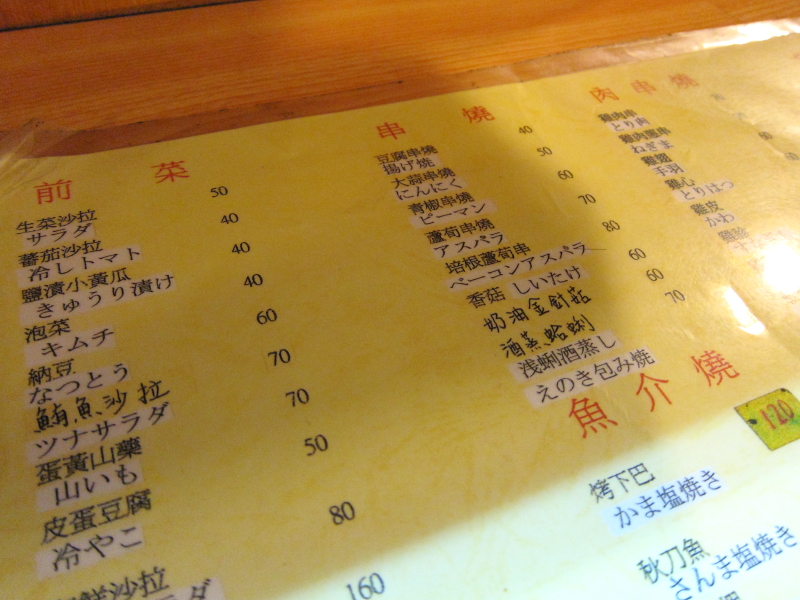 前菜
生菜沙拉
サラダ
50
蕃茄沙拉
冷しトマト
40
鹽漬小黃瓜
きゅうり漬け
40
泡菜
キムチ
40
納豆
なつとう
60
鮪魚沙拉
ツナサラダ
70
蛋黃山藥
山いも
70
皮蛋豆腐
冷やこ
50
80
鮮沙拉
160
串燒
豆腐串燒
揚げ焼
40
大蒜串燒
にんにく
50
青椒串燒
ピーマン
60
蘆荀串燒
アスパラ
70
培根蘆荀串
ベーコンアスパラ
80
香菇 しいたけ
60
奶油金針菇
60
酒蒸蛤蜊
70
浅蜊酒蒸し
えのき包み焼
肉串燒
雞肉串
とり肉
雞肉蔥串
ねぎま
雞翅
手羽
雞心
とりはつ
雞皮
かわ
魚介燒
120
烤下巴
かま塩焼き
秋刀魚
さんま塩焼き